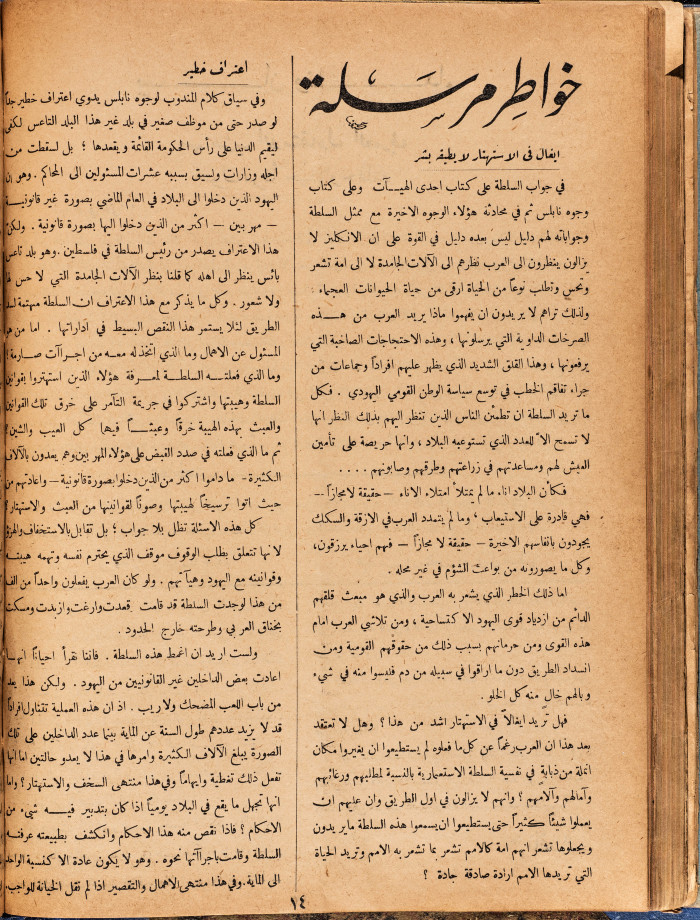 خواطر مرسلة
ايغال في الاستهتار لا يطيقه بشر
في جواب السلطة على كتاب احدى الهيـآت وعلى كتاب
وجوه نابلس ثم في محادثة هؤلاء الوجوه الاخيرة مع ممثل السلطة
وجواباته لهم دليل ليس بعده دليل في القوة على ان الانكليز لا
يزالون ينظرون الى العرب نظرهم الى الآلات الجامدة لا الى امة تشعر
ونحس وتطلب نوعاً من الحياة ارقى من حياة الحيوانات العجماء .
ولذلك تراهم لا يريدون ان يفهموا ماذا يريد العرب من هــذه
الصرخات الداوية التي يرسلونها ، وهذه الاحتجاجات الصاخبة التي
يرفعونها ، وهذا القلق الشديد الذي يظهر عليهم افراداً وجماعات من
جراء تفاقم الخطب في توسع سياسة الوطن القومي اليهودي . فكل
ما تريد السلطة ان تطمئن الناس الذين تنظر اليهم بذلك النظر انها
لا تسمح الا للعدد الذي تستوعبه البلاد ، وانها حريصة على تأمين
العيش لهم ومساعدتهم في زراعتهم وطرقهم وصابونهم ....
فكأن البلاد اناء ما لم يمتلأ امتلاء الاناء – حقيقة لا مجازاً –
فهي قادرة على الاستيعاب ، وما لم يتمدد العرب في الازقة والسكك
يجودون بانفاسهم الاخيرة – حقيقة لا مجازاً – فهم احياء يرزقون ،
وكل ما يصورونه من بواعث الشؤم في غير محله .
اما ذلك الخطر الذي يشعر به العرب والذي هو مبعث قلقهم
الدائم من ازدياد قوى اليهود الاكتساحية ، ومن تلاشي العرب امام
هذه القوى ومن حرمانهم بسبب ذلك من حقوقهم القومية ومن
انسداد الطريق دون ما اراقوا في سبيله من دم فليسوا منه في شيء
وبالهم خال منه كل الخلو .
فهل تريد ايغالاً في الاستهتار اشد من هذا ؟ وهل لا تعتقد
بعد هذا ان العرب رغماً عن كل ما فعلوه لم يستطيعوا ان يغيروا مكان
انملة من ذبابة في نفسية السلطة الاستعمارية بالنسبة لمطلبهم ورغائبهم
وآمالهم وآلامهم ؟ وانهم لا يزالون في اول الطريق وان عليهم ان
يعملوا شيئاً كثيراً حتى يستطيعوا ان يسمعوا هذه السلطة ما يريدون
ويجعلوها تشعر انهم امة كالامم تشعر بما تشعر به الامم وتريد الحياة
التي تريدها الامم ارادة صادقة جادة ؟
اعتراف خطير
وفي سياق كلام المندوب لوجوه نابلس يدوي اعتراف خطير جداً
لو صدر حتى من موظف صغير في بلد غير هذا البلد التاعس لكفى
ليقيم الدنيا على رأس الحكومة القائمة ويقعدها ؛ بل لسقطت من
اجله وزارات ولسيق بسببه عشرات المسئولين الى المحاكم . وهو ان
اليهود الذين دخلوا الى البلاد في العام الماضي بصورة غير قانونيــة
– مهربين – اكثر من الذين دخلوا اليها بصورة قانونية . ولكن
هذا الاعتراف يصدر من رئيس السلطة في فلسطين . وهو بلد تاعس
بائس ينظر الى اهله كما قلنا بنظر الآلات الجامدة التي لا حس لها
ولا شعور . وكل ما يذكر مع هذا الاعتراف ان السلطة مهتمة لسد
الطريق لئلا يستمر هذا النقص البسيط في اداراتها . اما من هو
المسئول عن الاهمال وما الذي اتخذله معه من اجراآت صارمة ؟
وما الذي فعلته السلطة لمعرفة هؤلاء الذين استهتروا بقوانين
السلطة وهيبتها واشتركوا في جريمة التآمر على خرق تلك القوانين
والعبث بهذه الهيبة خرقاً وعبثــاً فيهما كل العيب والشين ؟
ثم ما الذي فعلته في صدد القبض على هؤلاء المهربين وهم يعدون بالآلاف
الكثيرة – ما داموا اكثر من الذين دخلوا بصورة قانونية – واعادتهم من
حيث اتوا ترسيخاً لهيبتها وصوناً لقوانينها من العبث والاستهتار ؟
كل هذه الاسئلة تظل بلا جواب ؛ بل تقابل بالاستخفاف والهزؤ
لانها تتعلق بطلب الوقوف موقف الذي يحترم نفسه وتهمه هيبته
وقوانينه مع اليهود وهيآتهم . ولو كان العرب يفعلون واحداً من الف
من هذا لوجدت السلطة قد قامت وقعدت وارغت وازبدت ومسكت
بخناق العربي وطرحته خارج الحدود .
ولست اريد ان اغمط هذه السلطة . فاننا نقرأ احياناً انهــا
اعادت بعض الداخلين غير القانونيين من اليهود . ولكن هذا يعد
من باب اللعب المضحك ولا ريب . اذ ان هذه العملية تتناول افراداً
قد لا يزيد عددهم طول السنة عن الماية بينما عدد الداخلين على تلك
الصورة يبلغ الآلاف الكثيرة وامرها في هذا لا يعدو حالتين اما انها
تفعل ذلك تغطية وايهاماً وفي هذا منتهى السخف والاستهتار ؟ واما
انها تجهل ما يقع في البلاد يومياً اذا كان بتدبير فيــه شيء من
الاحكام ؟ فاذا نقص منه هذا الاحكام وانكشف بطبيعته عرفته
السلطة وقامت باجراآتها نحوه . وهو لا يكون عادة الا كنسبة الواحد
الى الماية . وفي هذا منتهى الاهمال والتقصير اذا لم نقل الخيانة للواجب .
١٤